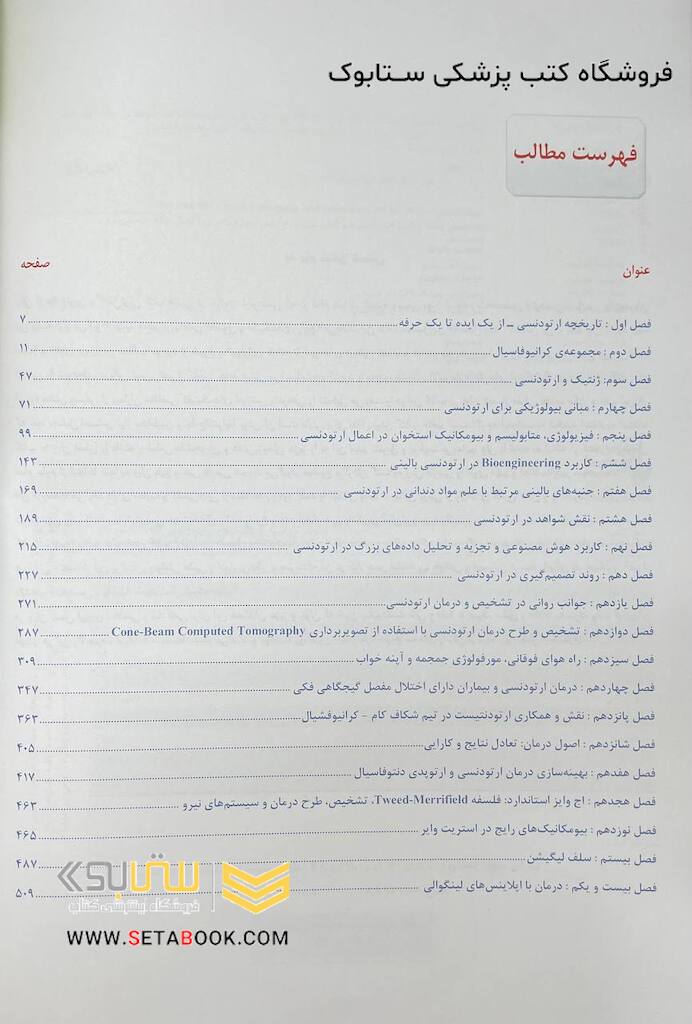 فروشگاه کتب پزشکی ستابوک
فهرست مطالب
عنوان صفحه
فصل اول : تاریخچه ارتودنسی – از یک ایده تا یک حرفه ۷
فصل دوم : مجموعه‌ی کرانیوفاسیال ۱۱
فصل سوم: ژنتیک و ارتودنسی ۴۷
فصل چهارم : مبانی بیولوژیکی برای ارتودنسی ۷۱
فصل پنجم : فیزیولوژی، متابولیسم و بیومکانیک استخوان در اعمال ارتودنسی ۹۹
فصل ششم : کاربرد Bioengineering در ارتودنسی بالینی ۱۴۳
فصل هفتم : جنبه‌های بالینی مرتبط با علم مواد دندانی در ارتودنسی ۱۶۹
فصل هشتم : نقش شواهد در ارتودنسی ۱۸۹
فصل نهم : کاربرد هوش مصنوعی و تجزیه و تحلیل داده‌های بزرگ در ارتودنسی ۲۱۵
فصل دهم : روند تصمیم‌گیری در ارتودنسی ۲۲۷
فصل یازدهم : جوانب روانی در تشخیص و درمان ارتودنسی ۲۷۱
فصل دوازدهم : تشخیص و طرح درمان ارتودنسی با استفاده از تصویربرداری Cone-Beam Computed Tomography ۲۸۷
فصل سیزدهم : راه هوای فوقانی، مورفولوژی جمجمه و آپنه خواب ۳۰۹
فصل چهاردهم : درمان ارتودنسی و بیماران دارای اختلال مفصل گیجگاهی فکی ۳۴۷
فصل پانزدهم : نقش و همکاری ارتودنتیست در تیم شکاف کام – کرانیوفشیال ۳۶۳
فصل شانزدهم : اصول درمان: تعادل نتایج و کارایی ۴۰۵
فصل هفدهم : بهینه‌سازی درمان ارتودنسی و ارتوپدی دنتوفاسیال ۴۱۷
فصل هجدهم : اج وایز استاندارد: فلسفه Tweed-Merrifield، تشخیص، طرح درمان و سیستم‌های نیرو ۴۶۳
فصل نوزدهم : بیومکانیک‌های رایج در استریت وایر ۴۶۵
فصل بیستم : سلف لیگیشن ۴۸۷
فصل بیست و یکم : درمان با اپلاینس‌های لینگوالی ۵۰۹
ستابوک
فروشگاه اینترنتی کتاب
WWW.SETABOOK.COM